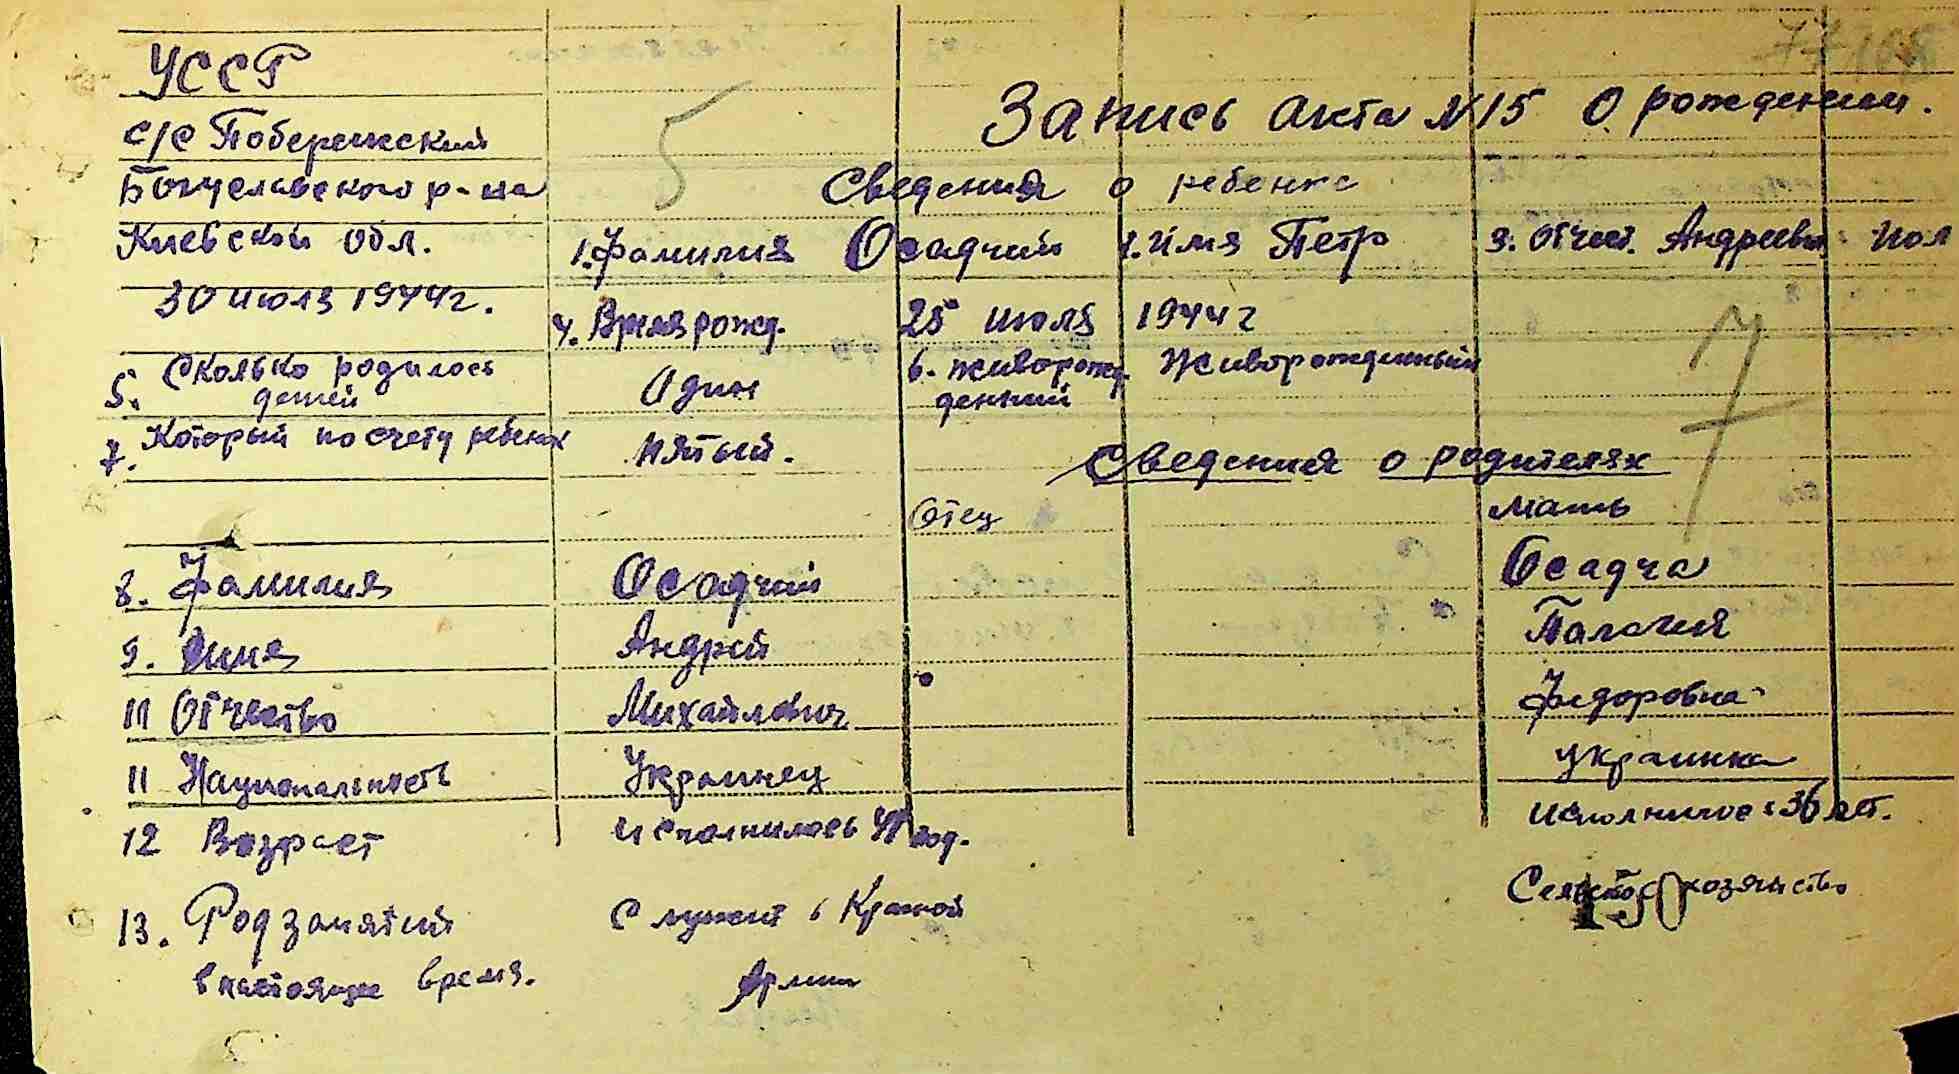 УССР
5
С/С Побережский
Запись акта №15 о рождении.
Богуславского р-на
Сведения о ребенке
Киевской обл.
1. Фамилия Осадчий 2. Имя Петр 3. Отчест. Андреевич Пол
30 июля 1944г.
4. Время рожд. 25 июля 1944 г
5. Сколько родилось детей Один
6. живорожденный Живорожденный
7
7. Который по счету ребенок пятый.
Сведения о родителях
Отец Мать
8. Фамилия Осадчий Осадча
9. Имя Андрей
11 Отчество Михайлович Федоровна
11 Национальность Украинец украинка
12 Возраст исполнилось год. исполнилось 36 лет.
13. Род занятий Служит в Красной Сельское хозяйство
150
в настоящее время. Армии